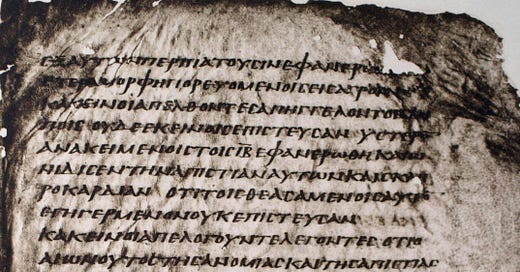 ΠΕΡΙΠΑΤΟΥϹΙΝ ΕΦΑΝΕΡ
ΜΟΡΦΗ ΠΟΡΕΥΟΜΕΝΟΙϹ ΕΙϹ ΑΓΡΟΝ
ΚΑΚΕΙΝΟΙ ΑΠΕΛΘΟΝΤΕϹ ΑΠΗΓΓΕΛΟΝ ΤΟΙϹ
ΠΟΙϹ ΟΥΔΕ ΕΚΕΙΝΟΙϹ ΕΠΙϹΤΕΥϹΑΝ ΥϹΤΕΡ
ΑΝΑΚΕΙΜΕΝΟΙϹ ΤΟΙϹ ΕΦΑΝΕΡΩΘΗ ΚΑΙ
ΝΙΔΙϹΕΝ ΤΗΝ ΑΠΙϹΤΙΑΝ ΑΥΤΩΝ ΚΑΙ ϹΚΛΗ
ΡΟΚΑΡΔΙΑΝ ΟΤΙ ΤΟΙϹ ΘΕΑϹΑΜΕΝΟΙϹ ΑΥΤΟ
ΕΓΗΓΕΡΜΕΝΟΝ ΟΥΚ ΕΠΙϹΤΕΥϹΑΝ
ΚΑΚΕΙΝΟΙ ΑΠΕΛΟΓΟΥΝΤΕ ΛΕΓΟΝΤΕϹ ΟΤΙ Ο
ΑΙΩΝ ΟΥΤΟϹ ΤΗϹ ΑΝΟΜΙΑϹ ΚΑΙ ΤΗϹ ΑΠΙϹΤΙΑϹ